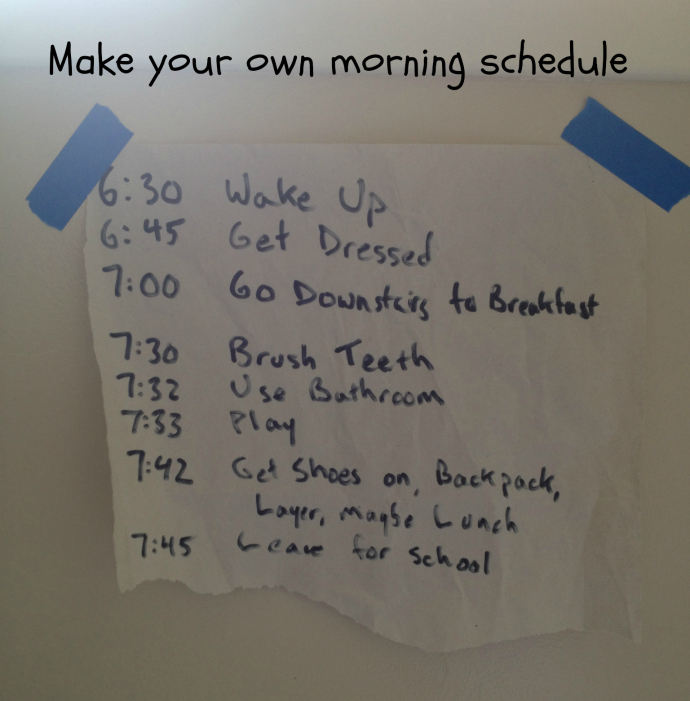 Make your own morning schedule
6:30 Wake Up
6:45 Get Dressed
7:00 Go Downstairs to Breakfast
7:30 Brush Teeth
7:32 Use Bathroom
7:33 Play
7:42 Get Shoes on, Backpack,
Layer, maybe Lunch
7:45 Leave for School